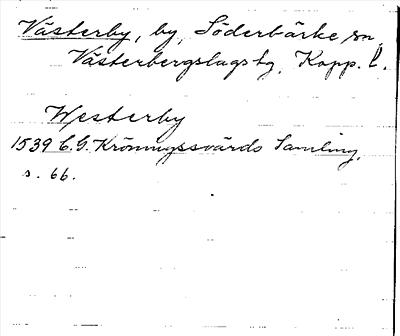 Västerby, by, Söderbärke sn,
Västerbergslags tg. Kopp. l.
Westerby
1539 C.G. Kröningssvärds Samling,
s. 66.